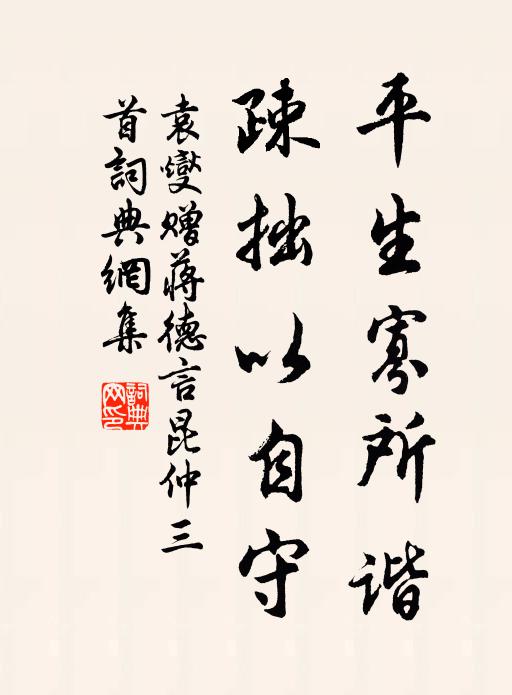 平生寡所谐
疎拙以自守
袁燮赠蒋德言昆仲三
首詞典網集
詞典網印